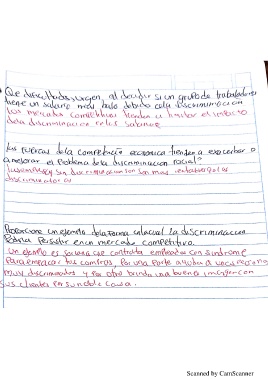 Que dificultades surgen, al decidir si un grupo de trabajadores
tiene un salario muy bajo debido a la discriminacion
Los mercados competitivos tienden a limitar el impacto
de la discriminacion en los salarios
Las fuerzas de la competencia economica tienden a exacerbar o
a mejorar el Problema de la discriminacion racial?
las empresas sin discriminacion son mas rentables que las
discriminatorias
Proporcione un ejemplo de la forma en la cual la discriminacion
Podria Persistir en un mercado competitivo.
Un ejemplo es que contrata empleados con sindrome
Para empacar tus compras, Por una Parte ayuda a
muy discriminados y Por otro brinda una buena imagen con
sus clientes
Scanned by CamScanner